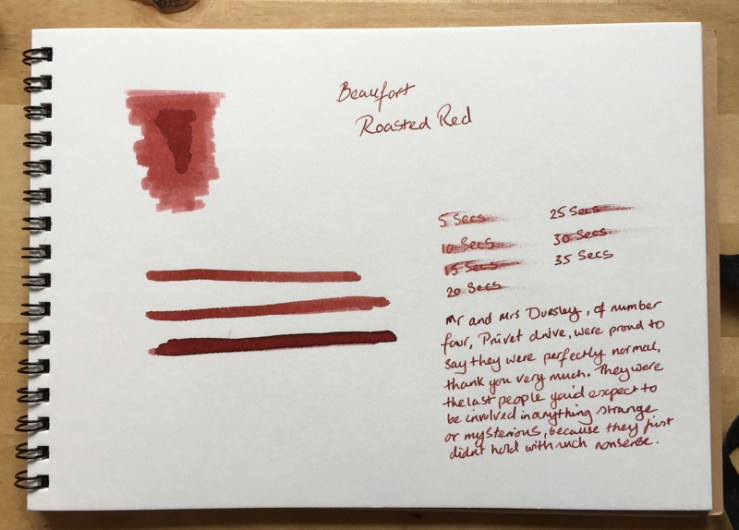 Beaufort
Roasted Red
5 Secs
10 Secs
15 Secs
20 Secs
25 Secs
30 Secs
35 Secs
Mr and Mrs Dursley, of number
four, Privet drive, were proud to
say they were perfectly normal,
thank you very much. They were
the last people you'd expect to
be involved in anything strange
or mysterious, because they just
didn't hold with such nonsense.